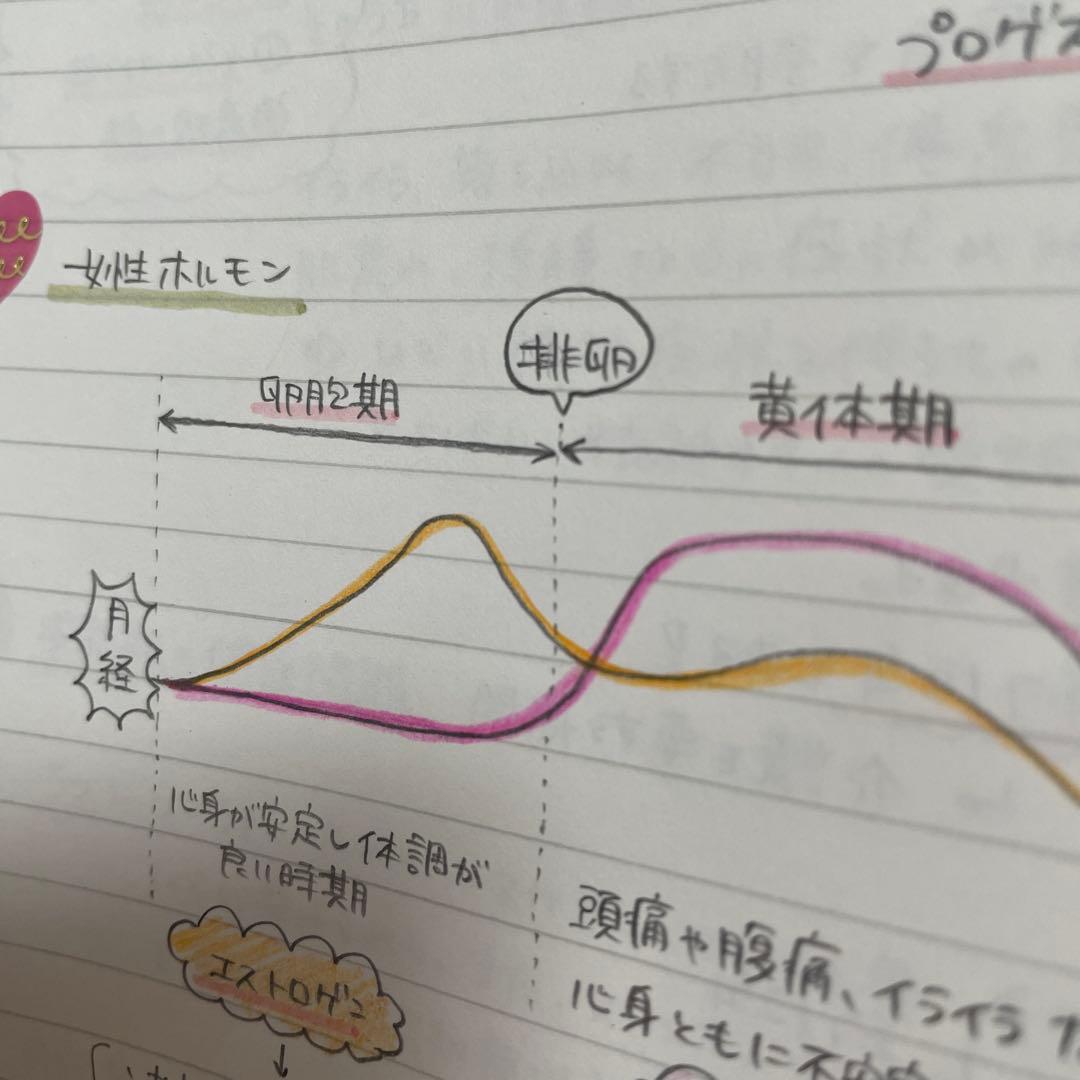 プロゲス
女性ホルモン
排卵
卵胞期
黄体期
月経
心身が安定し体調が
良い時期
頭痛や腹痛、イライラ
心身ともに不安
エストロゲン